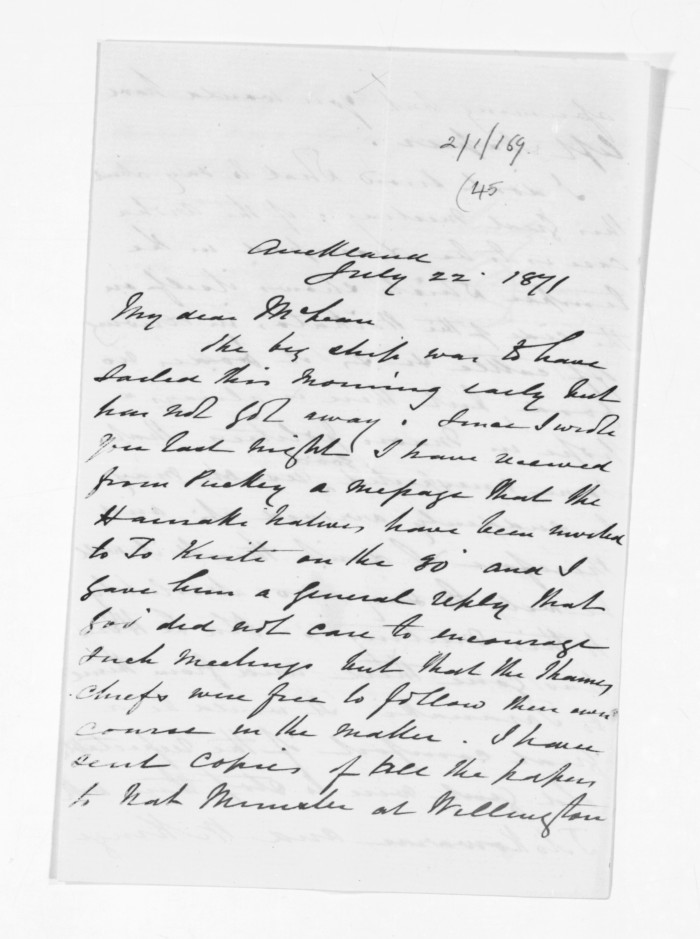 2/1/169.
(45
Auckland
July 22. 1871
My dear McLean
The big ship was to have
sailed this morning early but
has not got away. Since I wrote
you last night I have received
from Puckey a message that the
Hauraki Natives have been invited
to To Kuiti on the 30' and I
gave him a general reply that
Gov' did not care to encourage
such meetings but that the Thames
chiefs were free to follow their own
course in the matter. I have
sent copies of all the papers
to Nat Minister at Wellington